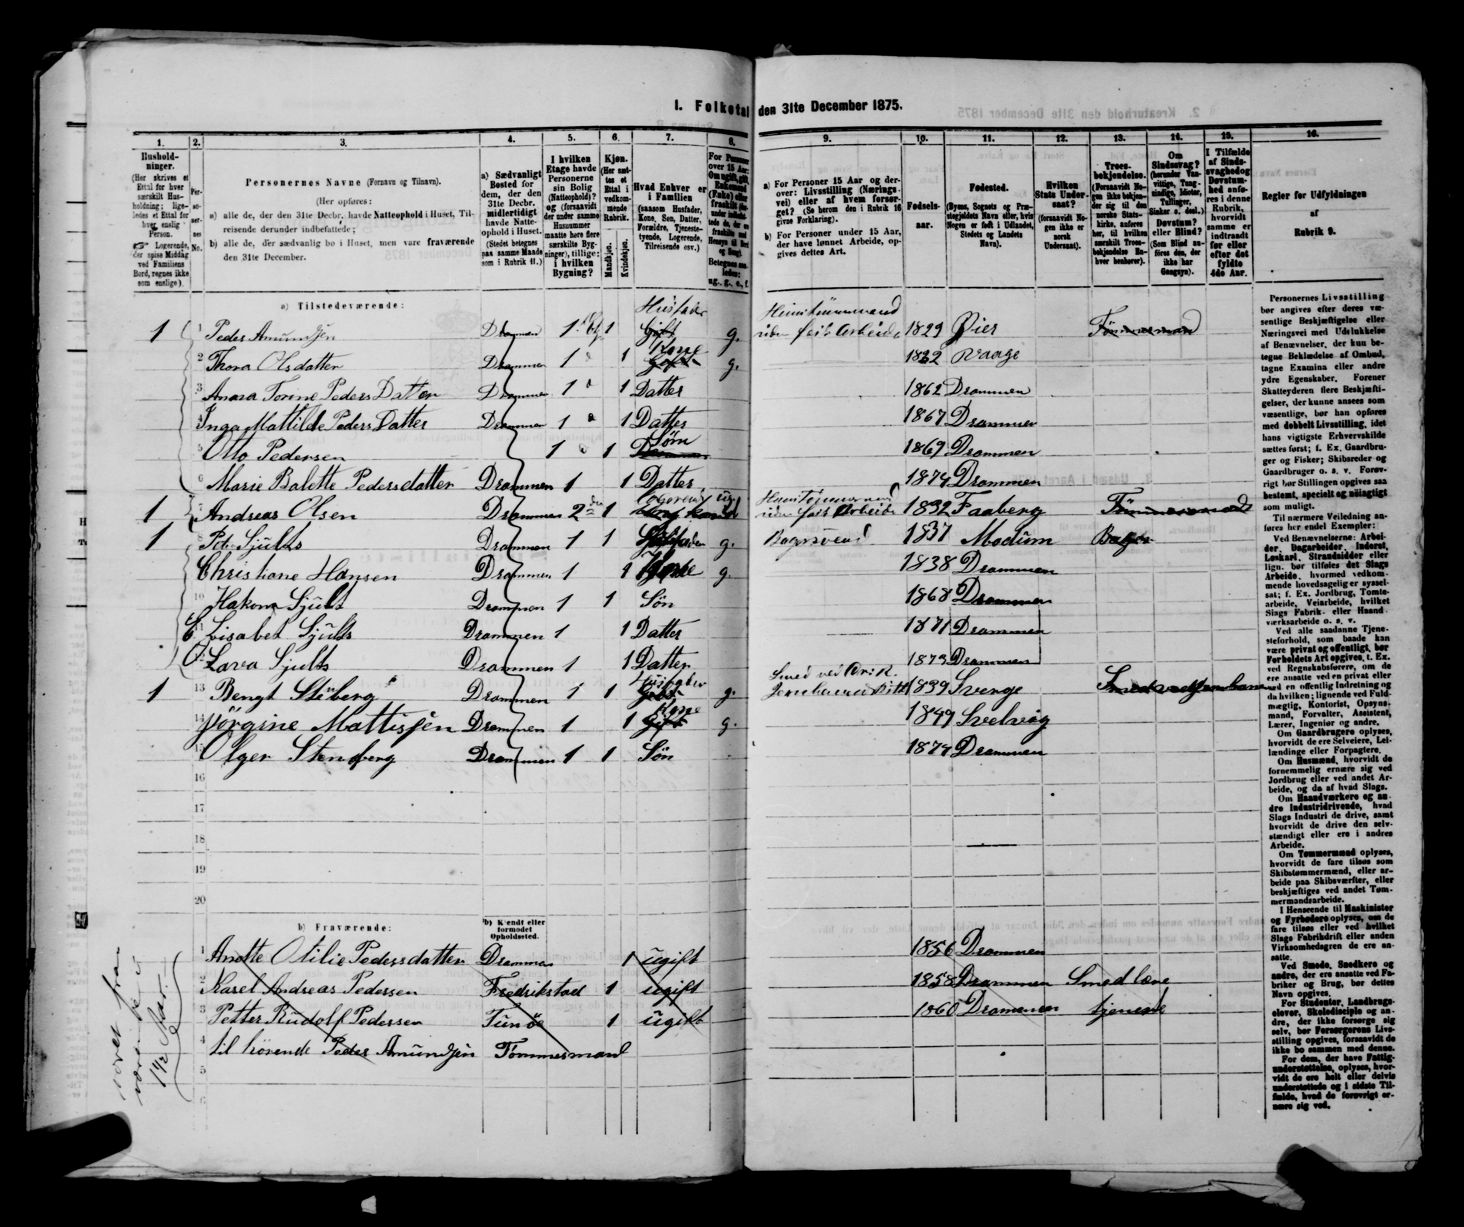 I. Folketal den 31te December 1875.
1. 2. 3. 4. 5. 6. 7. 8. 9. 10. 11. 12. 13. 14. 15. 16.
Husholdninger.
(Her skrives et Ettal for hver særskilt Husholdning; ligeledes et Ettal for hver, enslig Person.
Logerende, der spise Middag ved Familiens Bord, regnes ikke som enslige).
Personernes No.
Personernes Navne (Fornavn og Tilnavn).
(Her opføres:
a) alle de, der den 31te Decbr. havde Natteophold i Huset, Tilreisende derunder indbefattede;
b) alle de, der sædvanlig bo i Huset, men vare fraværende den 31te December.
a) Sædvanligt Bosted for dem, der den 31te Decbr. midlertidigt havde Natteophold i Huset.
I hvilken Etage havde Personerne sin Bolig (Natteophold)?
i hvilken Bygning?
Kjøn.
Mandkjøn. Kvindekjøn.
Hvad Enhver er i Familien
(saasom Husfader, Kone, Søn, Datter, Forældre, Tjenestetyende, Logerende, Tilreisende osv.)
a) For Personer 15 Aar og derover: Livsstilling (Næringsvei) eller af hvem forsørget? (Se herom den i Rubrik 16 givne Forklaring).
b) For Personer under 15 Aar, der have lønnet Arbeide, opgives dettes Art.
Fødselsaar.
Fødested.
(Byens, Sognets og Præstegjeldets Navn eller, hvis Nogen er født i Udlandet, Stedets og Landets Navn).
Hvilken Stats Undersaat?
(forsaavidt Nogen ikke er norsk Undersaat).
Troesbekjendelse.
Om Sindssvag?
Døvstum? eller Blind?
I Tilfælde af Sindssvaghed og Døvstumhed anføres i denne Rubrik, hvorvidt samme er indtraadt før eller efter det fyldte 4de Aar.
Regler for Udfyldningen
af
Rubrik 9.
a) Tilstedeværende:
1 1 Peder Amundsen Drammen 1 1 Husfader g. uden fast Arbeide 1829 Øier Tømmermand
2 Thora Olsdatter Drammen 1 1 Kone g. 1832 Vaage
3 Anara Torine Peders Datter Drammen 1 1 Datter 1862 Drammen
4 Inga Mattilde Peders Datter Drammen 1 1 Datter 1867 Drammen
5 Otto Pedersen 1 1 Søn 1869 Drammen
6 Marie Balette Pedersdatter Drammen 1 1 Datter 1874 Drammen
1 7 Andreas Olsen Drammen 2 1 logerende ug. uden fast Arbeide 1832 Faaberg Tømmermand
1 8 Sjults Drammen 1 1 Husfader g. Bagersvend 1837 Modum Bager
Christiane Hansen Drammen 1 1 Kone g. 1838 Drammen
10 Hakon Sjults Drammen 1 1 Søn 1868 Drammen
Elisabet Sjults Drammen 1 1 Datter 1871 Drammen
Lava Sjults Drammen 1 1 Datter 1873 Drammen
1 13 Bengt Drammen 1 1 Husfader g. Smed ved 1839 Sverge Smed ved Jernbanen
14 Jørgine Mattisen Drammen 1 1 Kone g. 1849 Svelvig
Olger Stenberg Drammen 1 1 Søn 1874 Drammen
16
17
18
19
20
b) Fraværende:
b) Kjendt eller formodet Opholdssted.
1 Anette Otilie Pedersdatter Drammen 1 ugift 1856 Drammen
2 Karel Andreas Pedersen Fredrikstad 1 ugift 1858 Drammen Smedlære
3 Petter Rudolf Pedersen 1 ugift 1860 Drammen tjeneste
4 til hørende Peder Amundsen Tømmermand
5
6
været fra
1 1/2 Aar
Personernes Livsstilling bør angives efter deres væsentlige Beskjæftigelse eller Næringsvei med Udelukkelse af Benævnelser, der kun betegne Beklædelse af Ombud, tagne Examina eller andre ydre Egenskaber. Forener Skatteyderen flere Beskjæftigelser, der kunne ansees som væsentlige, bør han opføres med dobbelt Livsstilling, idet hans vigtigste Erhvervskilde sættes først; f. Ex. Gaardbruger og Fisker; Skibsreder og Gaardbruger o. s. v. Forøvrigt bør Stillingen opgives saa bestemt, specielt og nøiagtigt som muligt.
Til nærmere Veiledning anføres her endel Exempler:
Ved Benævnelserne: Arbeider, Dagarbeider, Inderst, Løskarl, Strandsidder eller lign. bør tilføies det Slags Arbeide, hvormed vedkommende hovedsagelig er sysselsat; f. Ex. Jordbrug, Tomtearbeide, Veiarbeide, hvilket Slags Fabrik- eller Haandværksarbeide o. s. v.
Ved alle saadanne Tjenesteforhold, som baade kan være privat og offentligt, bør Forholdets Art opgives, f. Ex. ved Regnskabsførere, om de ere ansatte ved en privat eller ved en offentlig Indretning og da hvilken; lignende ved Fuldmægtig, Kontorist, Opsynsmand, Forvalter, Assistent, Lærer, Ingeniør og andre.
Om Gaardbrugere oplyses, hvorvidt de ere Selveiere, Leilændinge eller Forpagtere.
Om Husmænd, hvorvidt de fornemmelig ernære sig ved Jordbrug eller ved andet Arbeide, og da af hvad Slags.
Om Haandværkere og andre Industridrivende, hvad Slags Industri de drive, samt hvorvidt de drive den selvstændigt eller ere i andres Arbeide.
Om Tømmermænd oplyses, hvorvidt de fare tilsøs som Skibstømmermænd, eller arbeide paa Skibsværfter, eller beskjæftiges ved andet Tømmermandsarbeide.
I Henseende til Maskinister og Fyrbødere oplyses, om de fare tilsøs eller ved hvilket Slags Fabrikdrift eller anden Virksomhedsgren de ere ansatte.
Ved Smede, Snedkere og andre, der ere ansatte ved Fabriker og Brug, bør dettes Navn opgives.
For Studenter, Landbrugselever, Skoledisciple og andre, der ikke forsørge sig selv, bør Forsørgerens Livsstilling opgives, forsaavidt de ikke bo sammen med denne.
For dem, der have Fattigunderstøttelse, oplyses, hvorvidt de ere helt eller delvis understøttede og i sidste Tilfælde, hvad de forøvrigt ernære sig ved.